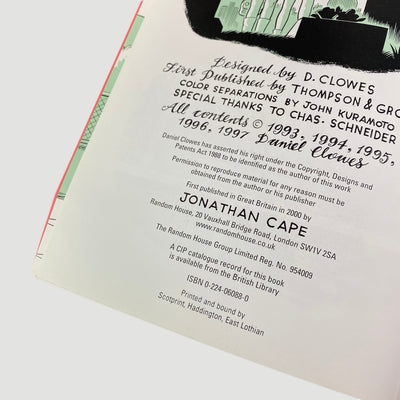 Designed by D. CLOWES
First Published by THOMPSON & GRO
COLOR SEPARATIONS BY JOHN KURAMOTO
SPECIAL THANKS TO CHAS. SCHNEIDER
All contents © 1993, 1994, 1995,
1996, 1997 Daniel Clowes
Daniel Clowes has asserted his right under the Copyright, Designs and
Patents Act 1988 to be identified as the author of this work
Permission to reproduce material for any reason must be
obtained from the author or his publisher
First published in Great Britain in 2000 by
JONATHAN CAPE
Random House, 20 Vauxhall Bridge Road, London SW1V 2SA
www.randomhouse.co.uk
The Random House Group Limited Reg. No. 954009
A CIP catalogue record for this book
is available from the British Library
ISBN 0-224-06088-0
Printed and bound by
Scotprint, Haddington, East Lothian